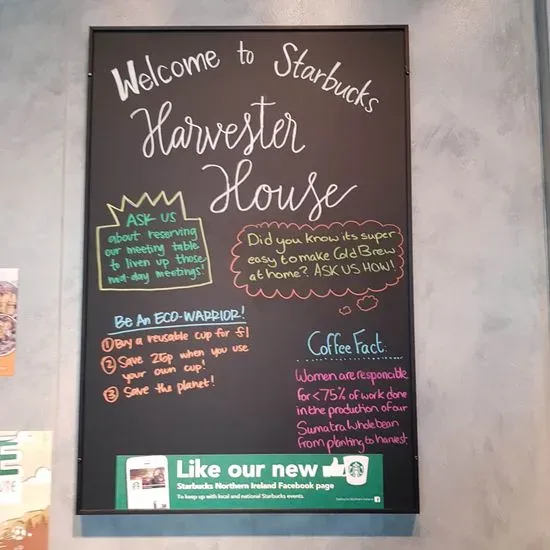 Welcome to Starbucks
Harvester
House
ASK US
about reserving
our meeting table
to liven up those
mid-day meetings!
Did you know its super
easy to make Cold Brew
at home? ASK US HOW!
BE AN ECO-WARRIOR!
① Buy a reusable cup for £1
② Save 26p when you use
your own cup!
③ Save the planet!
Coffee Fact:
Women are responsible
for <75% of work done
in the production of our
Sumatra wholebean
from planting to harvest
Like our new
Starbucks Northern Ireland Facebook page
To keep up with local and national Starbucks events.